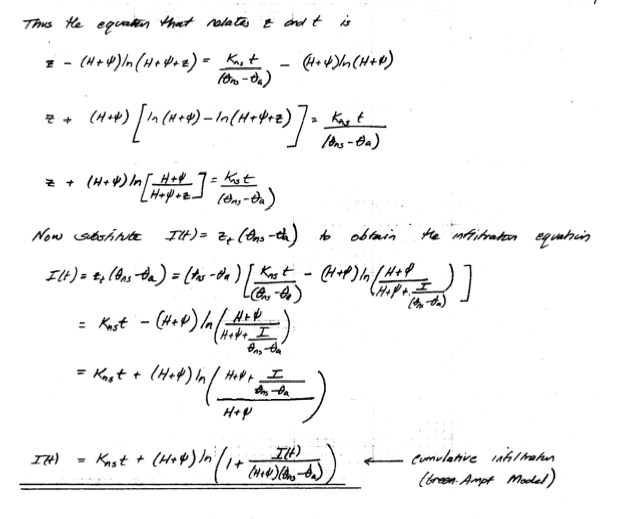 Thus the equation that relates z and t is
z - (H+ψ)ln(H+ψ+z) = K_ns t / (θ_ns - θ_a) - (H+ψ)ln(H+ψ)
z + (H+ψ)[ln(H+ψ) - ln(H+ψ+z)] = K_ns t / (θ_ns - θ_a)
z + (H+ψ)ln[(H+ψ) / (H+ψ+z)] = K_ns t / (θ_ns - θ_a)
Now substitute I(t) = z_f (θ_ns - θ_a) to obtain the infiltration equation
I(t) = z_f (θ_ns - θ_a) = (θ_ns - θ_a)[K_ns t / (θ_ns - θ_a) - (H+ψ)ln((H+ψ) / (H+ψ+ I / (θ_ns - θ_a)))]
= K_ns t - (H+ψ)ln((H+ψ) / (H+ψ+ I / (θ_ns - θ_a)))
= K_ns t + (H+ψ)ln((H+ψ+ I / (θ_ns - θ_a)) / (H+ψ))
I(t) = K_ns t + (H+ψ)ln(1 + I(t) / ((H+ψ)(θ_ns - θ_a))) ← cumulative infiltration
(Green-Ampt Model)